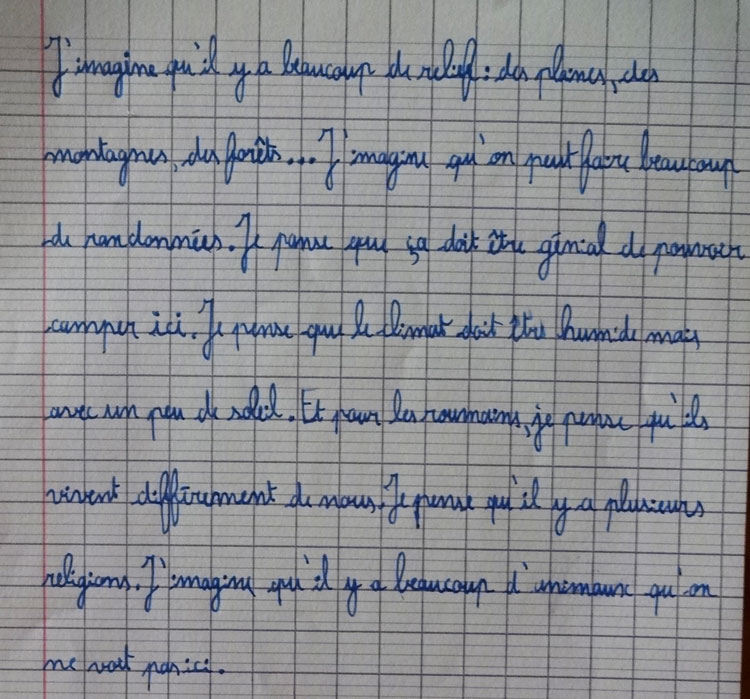 J'imagine qu'il y a beaucoup de relief : des plaines, des
montagnes, des forêts... J'imagine qu'on peut faire beaucoup
de randonnées. Je pense que ça doit être génial de pouvoir
camper ici. Je pense que le climat doit être humide mais
avec un peu de soleil. Et pour les roumains, je pense qu'ils
vivent différement de nous. Je pense qu'il y a plusieurs
religions. J'imagine qu'il y a beaucoup d'animaux qu'on
ne voit pas ici.